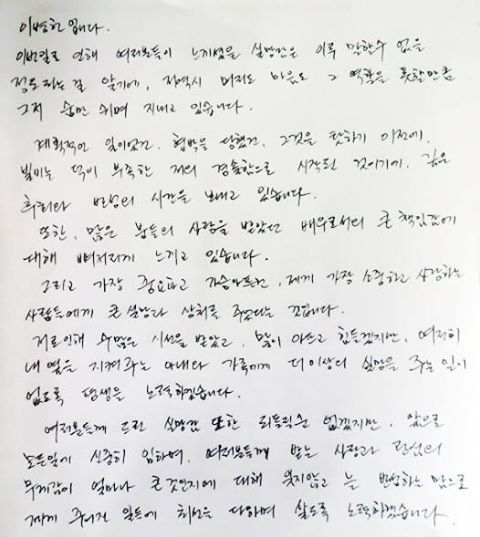 이병헌입니다.
이번일로 인해 여러분들이 느끼셨을 실망감은 이루 말할수 없을
정도라는 걸 알기에, 저역시 머리도 마음도 그 역할을 못할만큼
그저 숨만 쉬며 지내고 있습니다.
계획적인 일이었건, 협박을 당했건, 그것을 탓하기 이전에,
빌미는 덕이 부족한 저의 경솔함으로 시작된 것이기에, 깊은
후회와 반성의 시간을 보내고 있습니다.
또한, 많은 분들의 사랑을 받았던 배우로서의 큰 책임감에
대해 뼈저리게 느끼고 있습니다.
그리고 가장 중요하고 가슴아픈건, 제게 가장 소중하고 사랑하는
사람들에게 큰 실망과 상처를 주었다는 겁니다.
저로인해 수많은 시선을 받았고, 많이 아프고 힘든겠지만, 여전히
내 옆을 지켜주는 아내와 가족에게 더이상의 실망을 주는 일이
없도록 평생을 노력하겠습니다.
여러분들께 드린 실망감 또한 되돌릴순 없겠지만, 앞으로
모든일에 신중히 임하며, 여러분들께 받은 사랑과 관심의
무게감이 얼마나 큰것인지에 대해 잊지않고 늘 반성하는 맘으로
제게 주어진 일들에 최선을 다하며 살도록 노력하겠습니다.